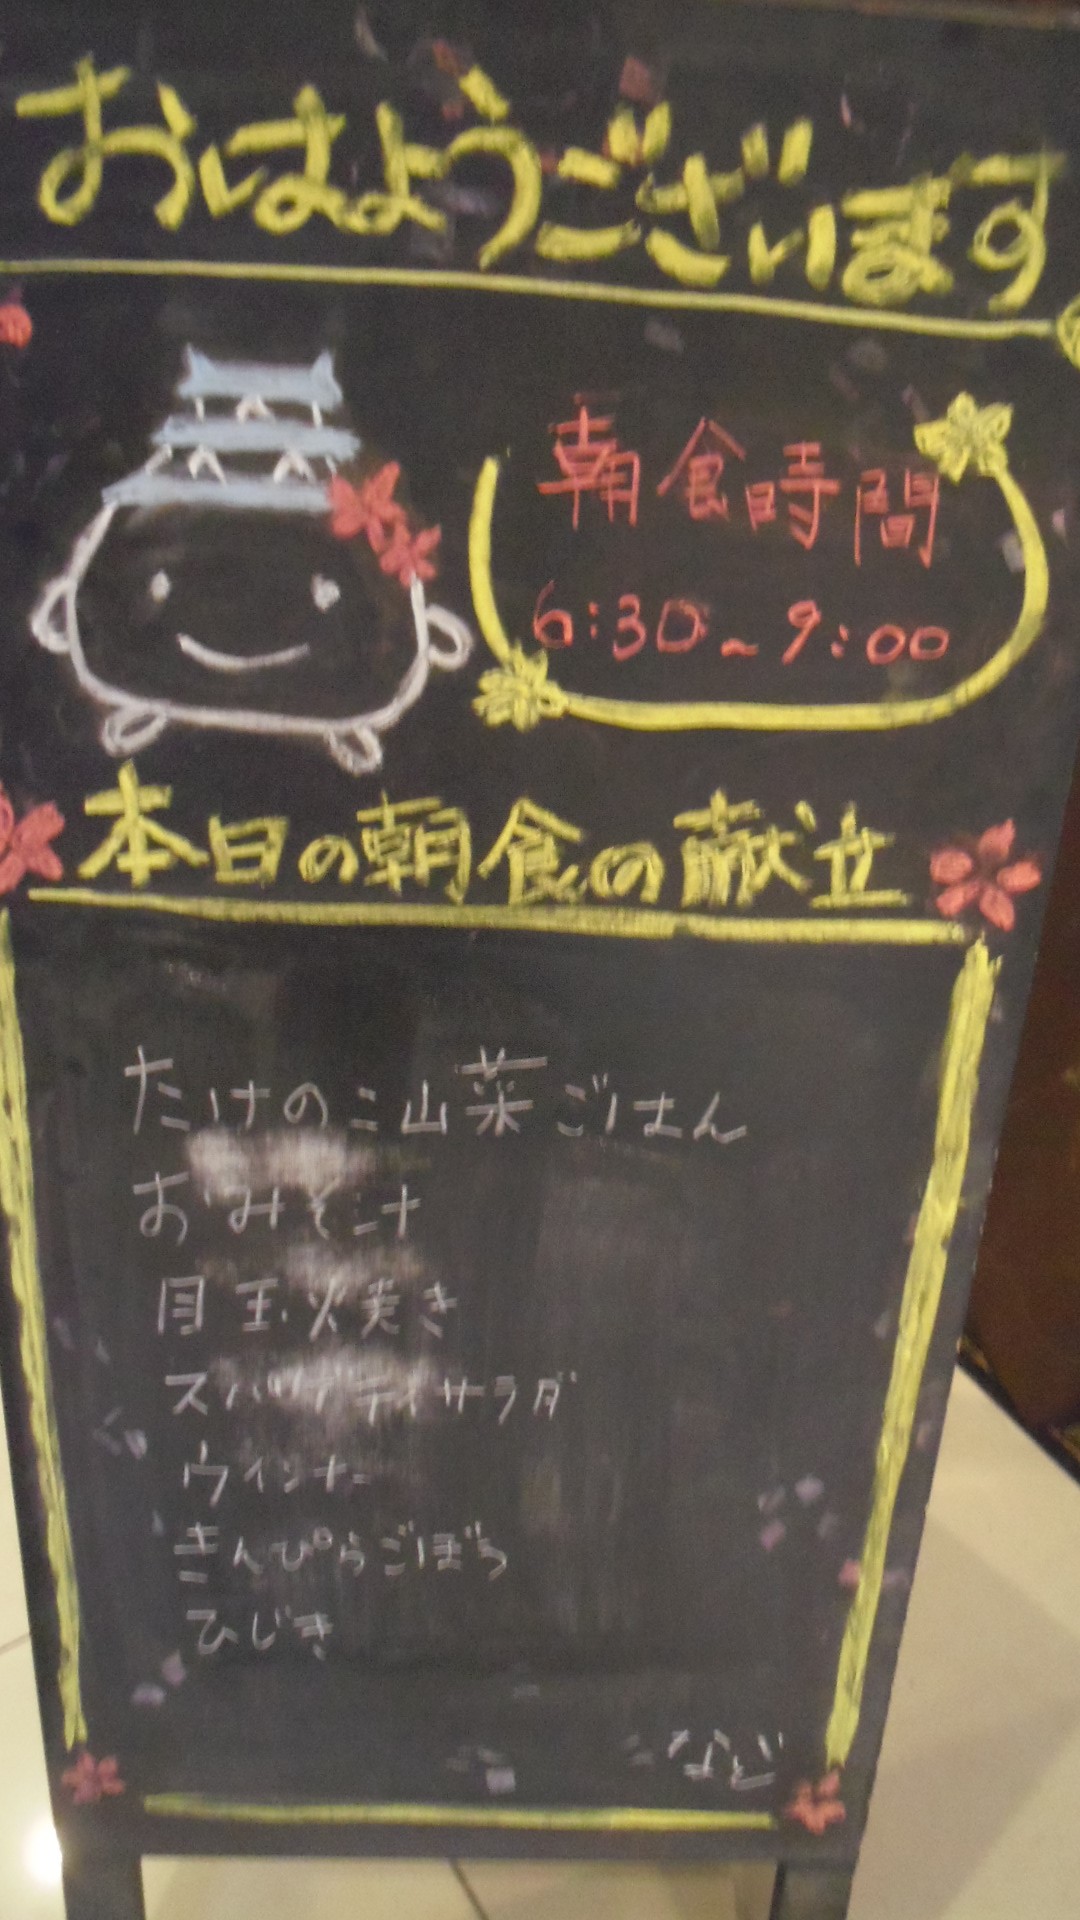 おはようございます
朝食時間
6:30~9:00
本日の朝食の献立
たけのこ山菜ごはん
おみそ汁
目玉焼き
スパゲティサラダ
ウインナー
きんぴらごぼう
ひじき
など